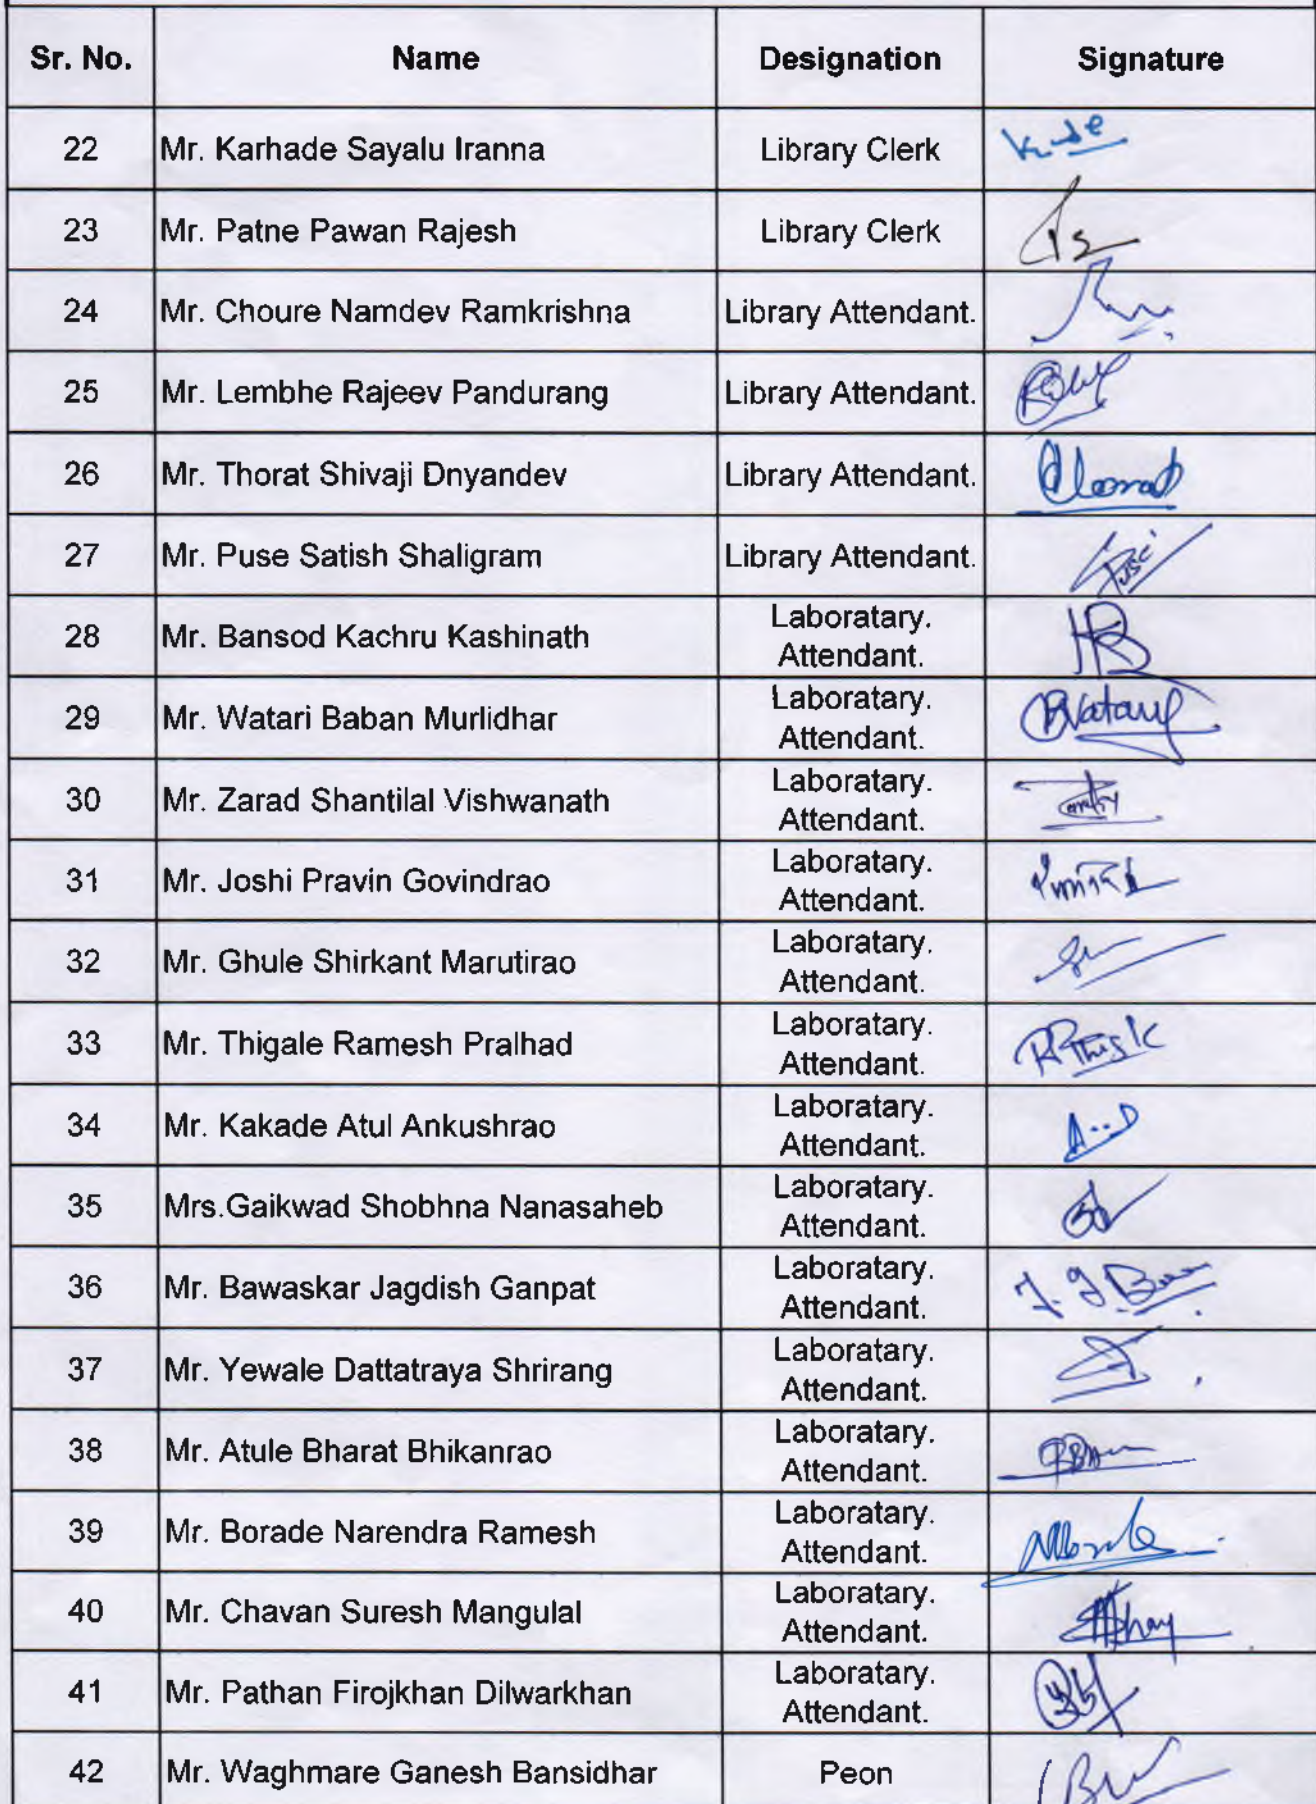 Sr. No. Name Designation Signature
22 Mr. Karhade Sayalu Iranna Library Clerk
23 Mr. Patne Pawan Rajesh Library Clerk
24 Mr. Choure Namdev Ramkrishna Library Attendant.
25 Mr. Lembhe Rajeev Pandurang Library Attendant.
26 Mr. Thorat Shivaji Dnyandev Library Attendant.
27 Mr. Puse Satish Shaligram Library Attendant.
28 Mr. Bansod Kachru Kashinath Laboratary.
Attendant.
29 Mr. Watari Baban Murlidhar Laboratary.
Attendant.
30 Mr. Zarad Shantilal Vishwanath Laboratary.
Attendant.
31 Mr. Joshi Pravin Govindrao Laboratary.
Attendant.
32 Mr. Ghule Shirkant Marutirao Laboratary.
Attendant.
33 Mr. Thigale Ramesh Pralhad Laboratary.
Attendant.
34 Mr. Kakade Atul Ankushrao Laboratary.
Attendant.
35 Mrs.Gaikwad Shobhna Nanasaheb Laboratary.
Attendant.
36 Mr. Bawaskar Jagdish Ganpat Laboratary.
Attendant.
37 Mr. Yewale Dattatraya Shrirang Laboratary.
Attendant.
38 Mr. Atule Bharat Bhikanrao Laboratary.
Attendant.
39 Mr. Borade Narendra Ramesh Laboratary.
Attendant.
40 Mr. Chavan Suresh Mangulal Laboratary.
Attendant.
41 Mr. Pathan Firojkhan Dilwarkhan Laboratary.
Attendant.
42 Mr. Waghmare Ganesh Bansidhar Peon